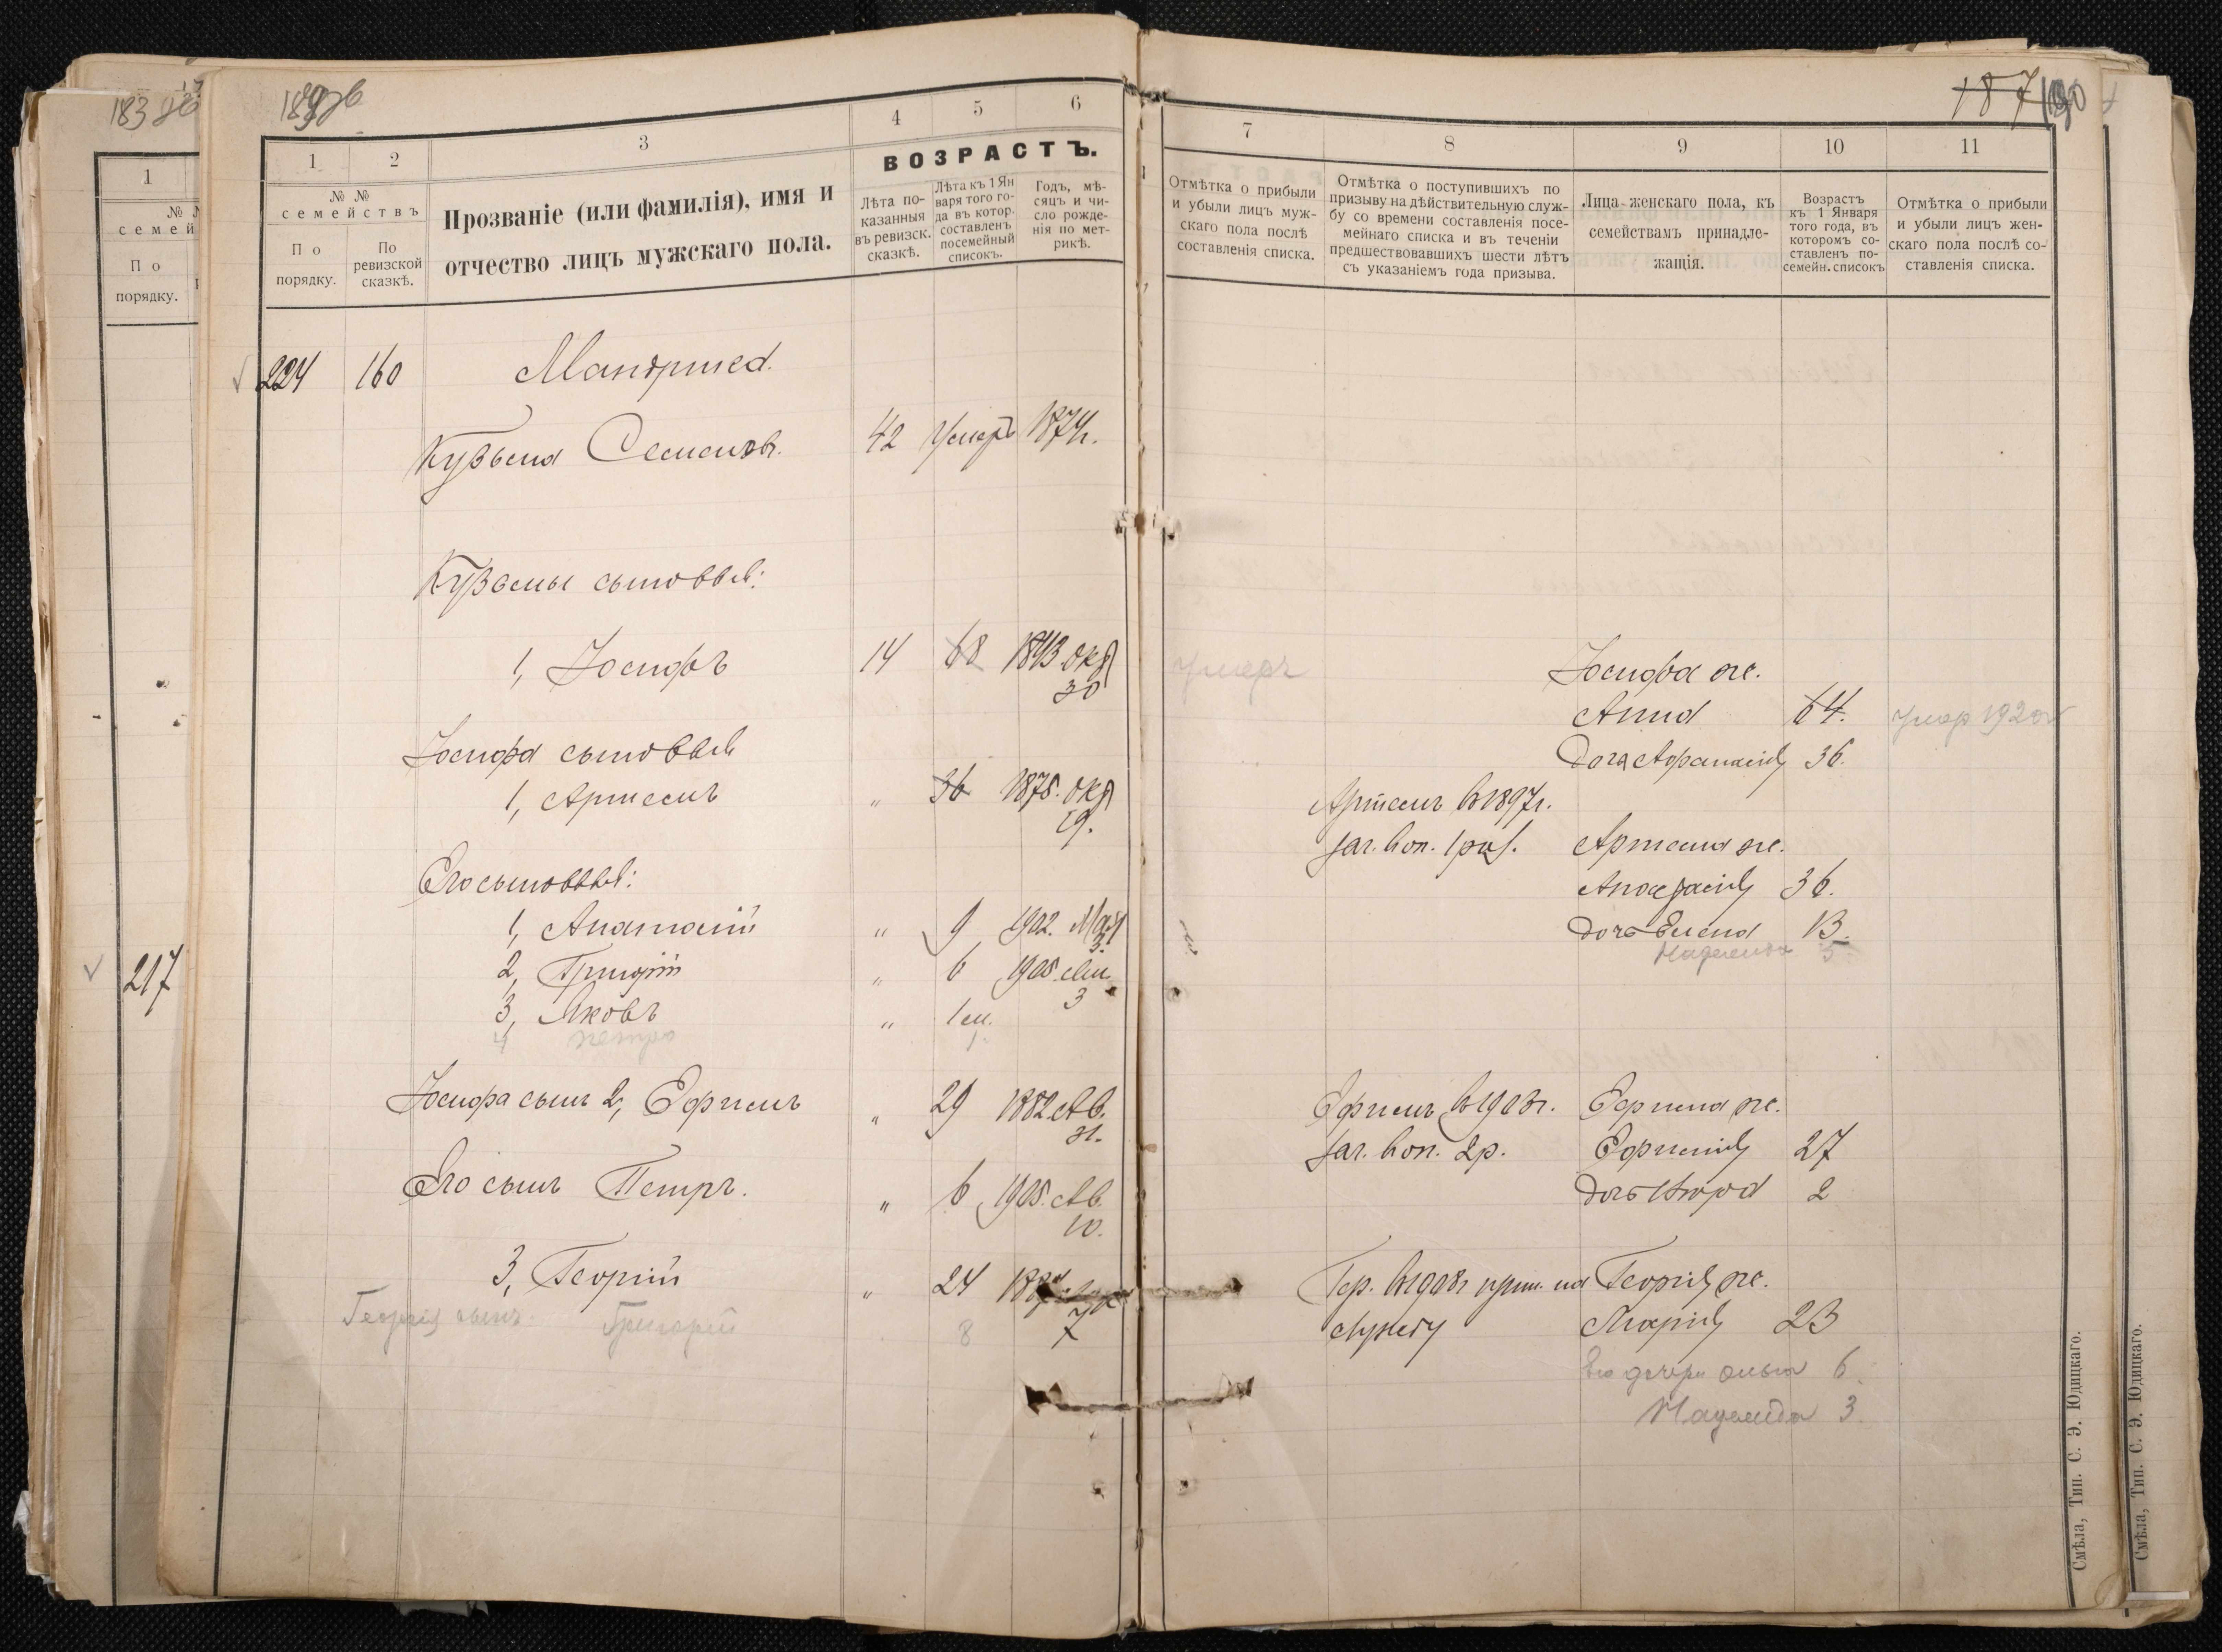 183
1
семей
По
порядку.
217
1
2
3
4
5
6
ВОЗРАСТЪ.
№ №
семействъ
По
порядку.
По
ревизской
сказкѣ.
Прозваніе (или фамилія), имя и
отчество лицъ мужскаго пола.
Лѣта по-
казанныя
въ ревизск.
сказкѣ.
Лѣта къ 1 Ян
варя того го-
да въ котор.
составленъ
посемейный
списокъ.
Годъ, мѣ-
сяцъ и чи-
сло рожде-
нія по мет-
рикѣ.
224 160
Кузьма Семеновъ. 42 Умеръ 1874г.
Кузьмы сыновья:
1, Іосифъ 14 68 1843 окт
30
Іосифа сыновья
1, Артемъ " 36 1875. окт
19.
Его сыновья:
1, Анатолій " 9 1902. Мая
3.
2, Григорій " 6 1905.
3
3, Яковъ " 1 м.
4 Петро
Іосифа сынъ 2, Ефимъ " 29 1882 Ав.
31.
Его сынъ Петръ. " 6 1905. Ав.
10.
3, Георгій " 24
7
Георгія сынъ Григорій 8
187 190
7
8
9
10
11
Отмѣтка о прибыли
и убыли лицъ муж-
скаго пола послѣ
составленія списка.
Отмѣтка о поступившихъ по
призыву на дѣйствительную служ-
бу со времени составленія посе-
мейнаго списка и въ теченіи
предшествовавшихъ шести лѣтъ
съ указаніемъ года призыва.
Лица женскаго пола, къ
семействамъ принадле-
жащія.
Возрастъ
къ 1 Января
того года, въ
которомъ со-
ставленъ по-
семейн. списокъ
Отмѣтка о прибыли
и убыли лицъ жен-
скаго пола послѣ со-
ставленія списка.
умеръ Іосифа ж.
Анна 64. умер 1920 г
Доч Афанасія 36.
Артемъ в 1897г.
зач. в оп. 1 раз. Артема ж.
Анастасія 36.
Дочь Елена 13.
Надежда 5
Ефимъ в 1903г. Ефима ж.
зач. в оп. 2 р. Ефимія 27
Дочь 2
Гер. в 1908г прин. на Георгія ж.
службу Марія 23
его дочери Ольга 6.
Надежда 3.
Смѣла, Тип. С. Э. Юдицкаго.
Смѣла, Тип. С. Э. Юдицкаго.